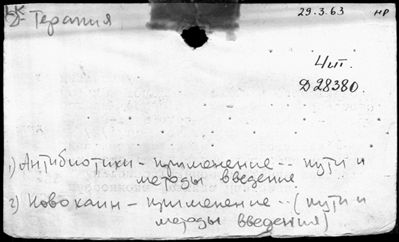 Терапия
29.3.63
НР
Чит.
Д 28380.
1) Антибиотики - применение -- пути и
методы введения
2) Новокаин - применение -- (пути и
методы введения)